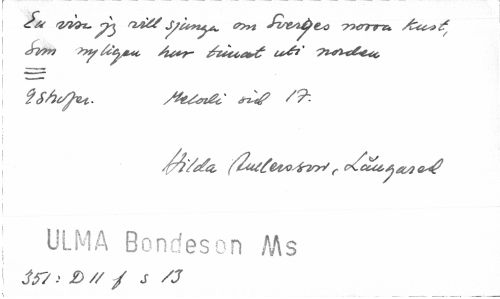 En visa jg vill sjunga om Sverges norra kust,
Som nyligen har timat uti norden
9 strofer. Melodi sid 17.
Hilda Andersson, Långared
ULMA Bondeson Ms
351: D II f s 13